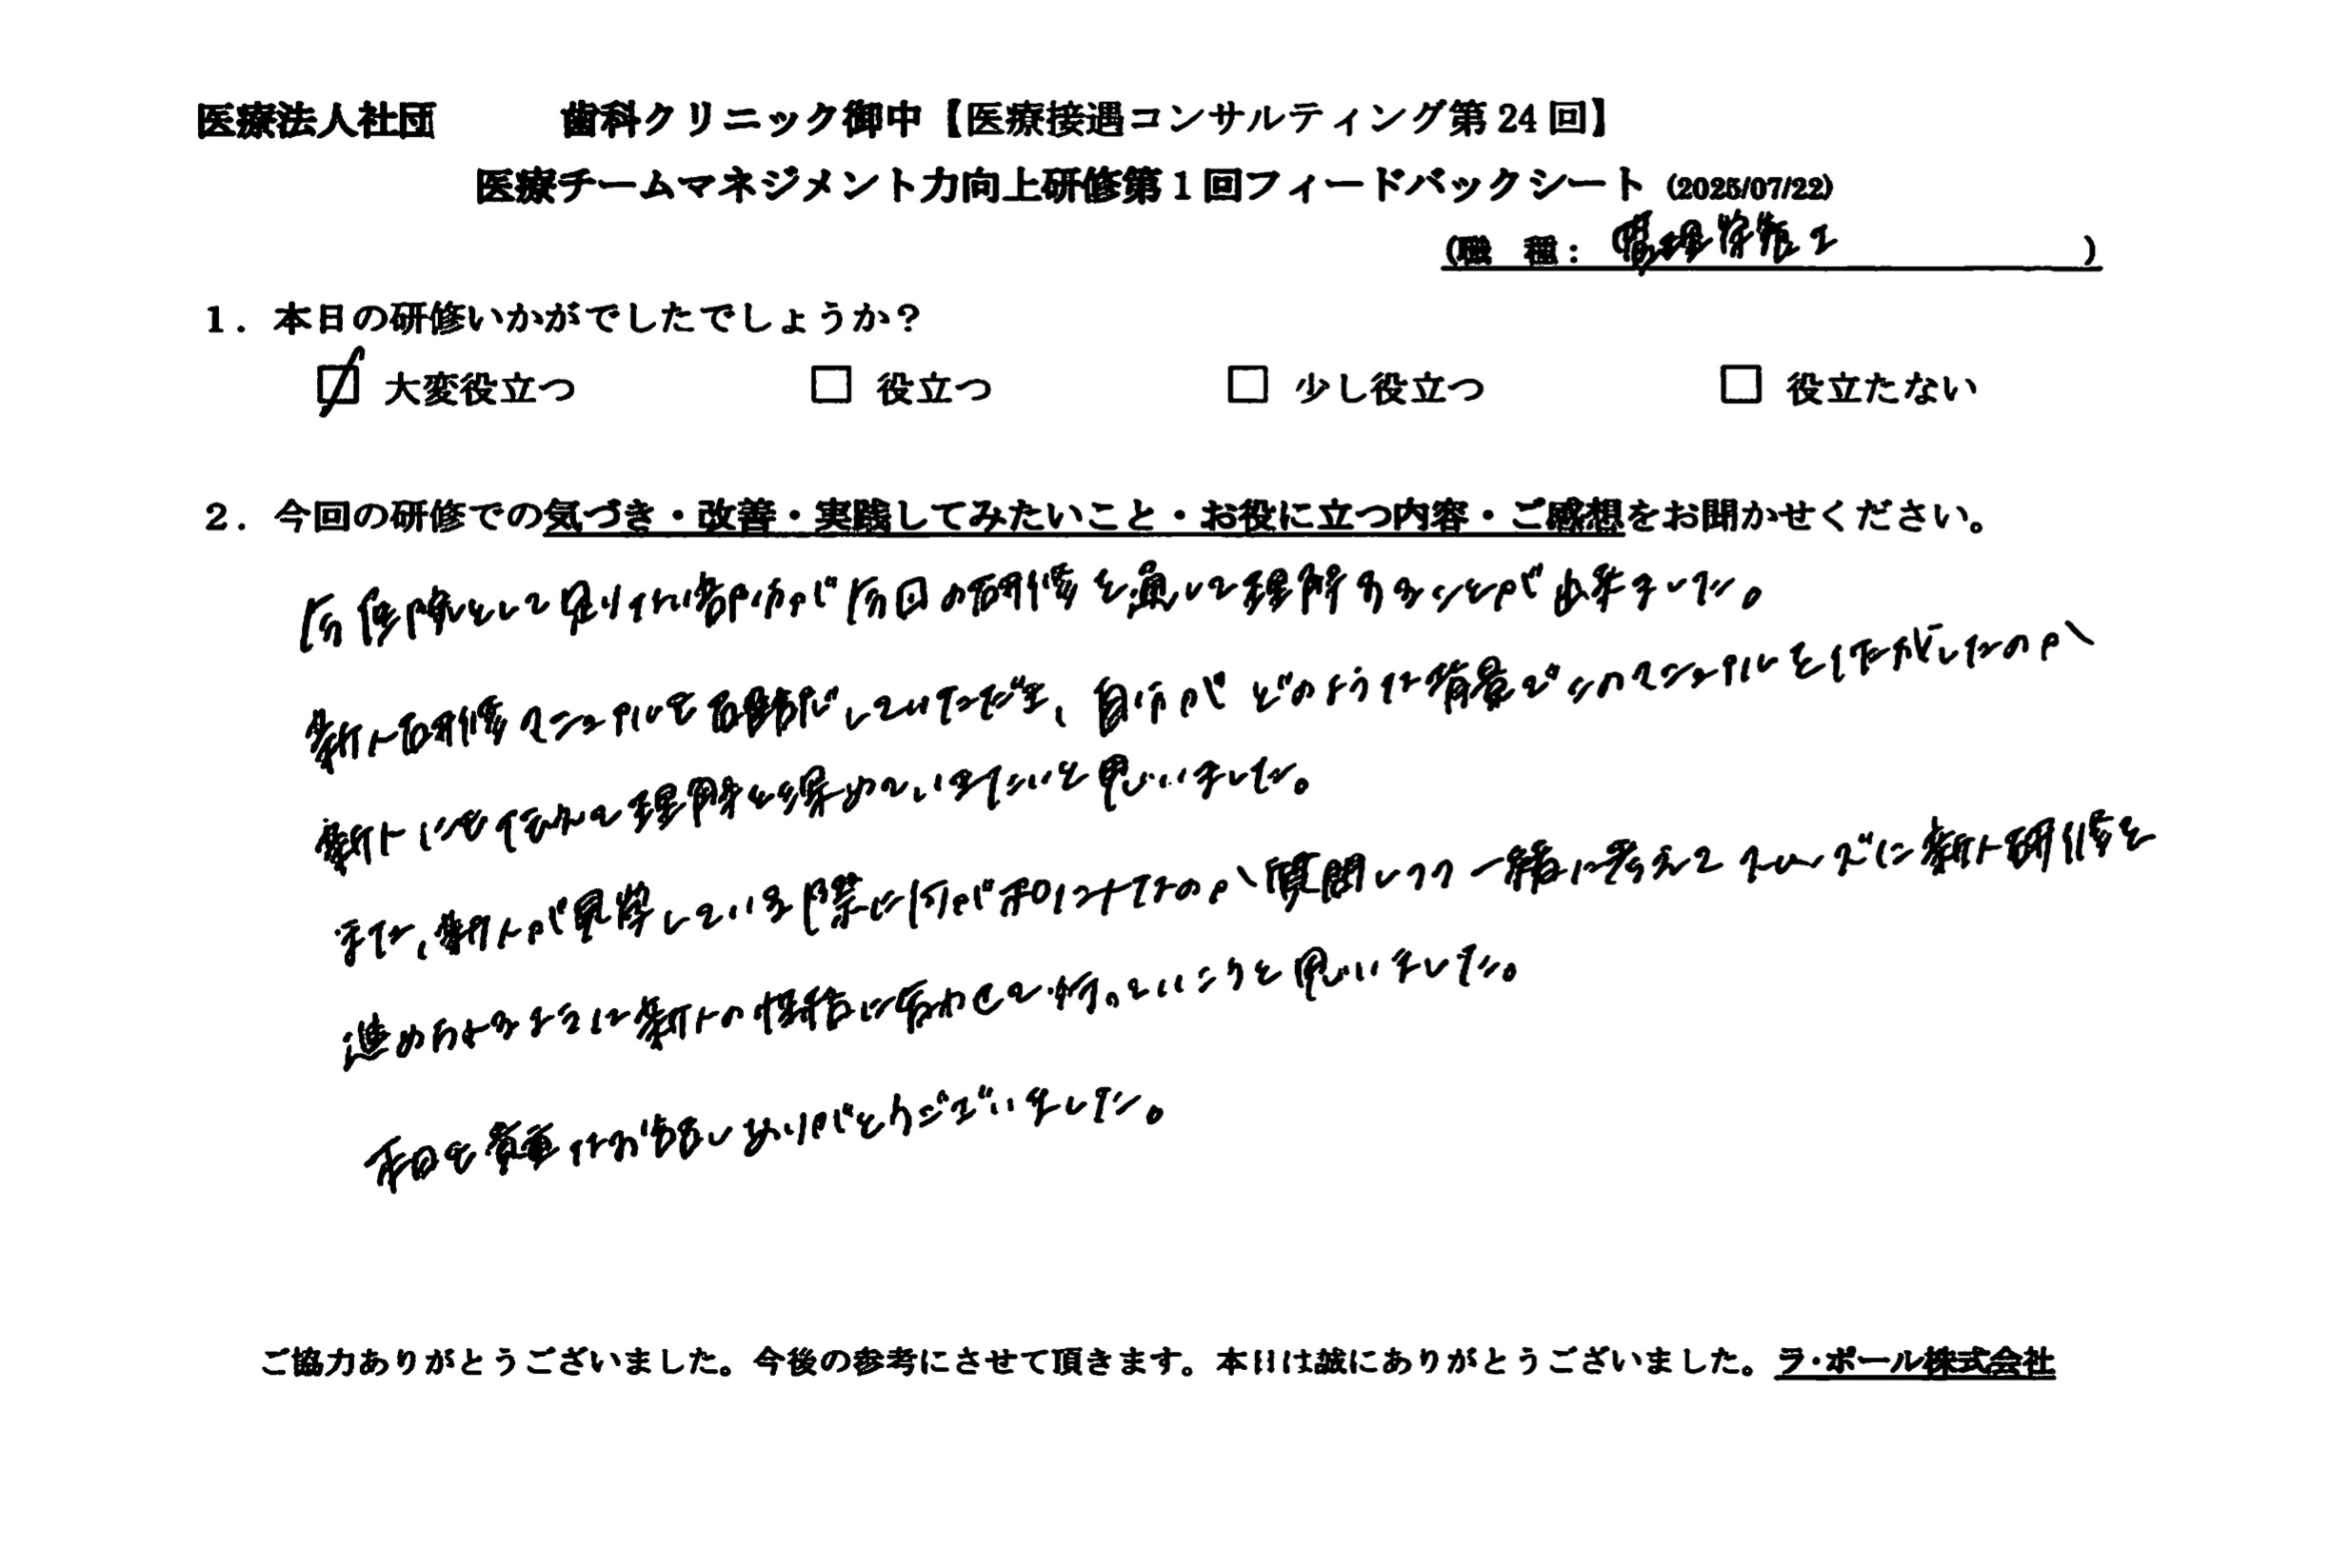 医療法人社団　歯科クリニック御中【医療接遇コンサルティング第24回】
医療チームマネジメント力向上研修第1回フィードバックシート（2025/07/22）
（職　種：　　　　　）
1．本日の研修いかがでしたでしょうか？
☑ 大変役立つ　□ 役立つ　□ 少し役立つ　□ 役立たない
2．今回の研修での気づき・改善・実践してみたいこと・お役に立つ内容・ご感想をお聞かせください。
として足りない部分が今回の研修を通して理解することが出来ました。
新人研修マニュアルを していただき、自分がどのような背景でこのマニュアルを作成したのか
新人にも伝えて理解を深めていきたいと思いました。
また、新人が見学している際に何がポイントなのか質問しつつ一緒に考えてスムーズに新人研修を
進められるように新人の性格に合わせて行っていこうと思いました。
本日も貴重なお話しありがとうございました。
ご協力ありがとうございました。今後の参考にさせて頂きます。本日は誠にありがとうございました。ラ・ポール株式会社